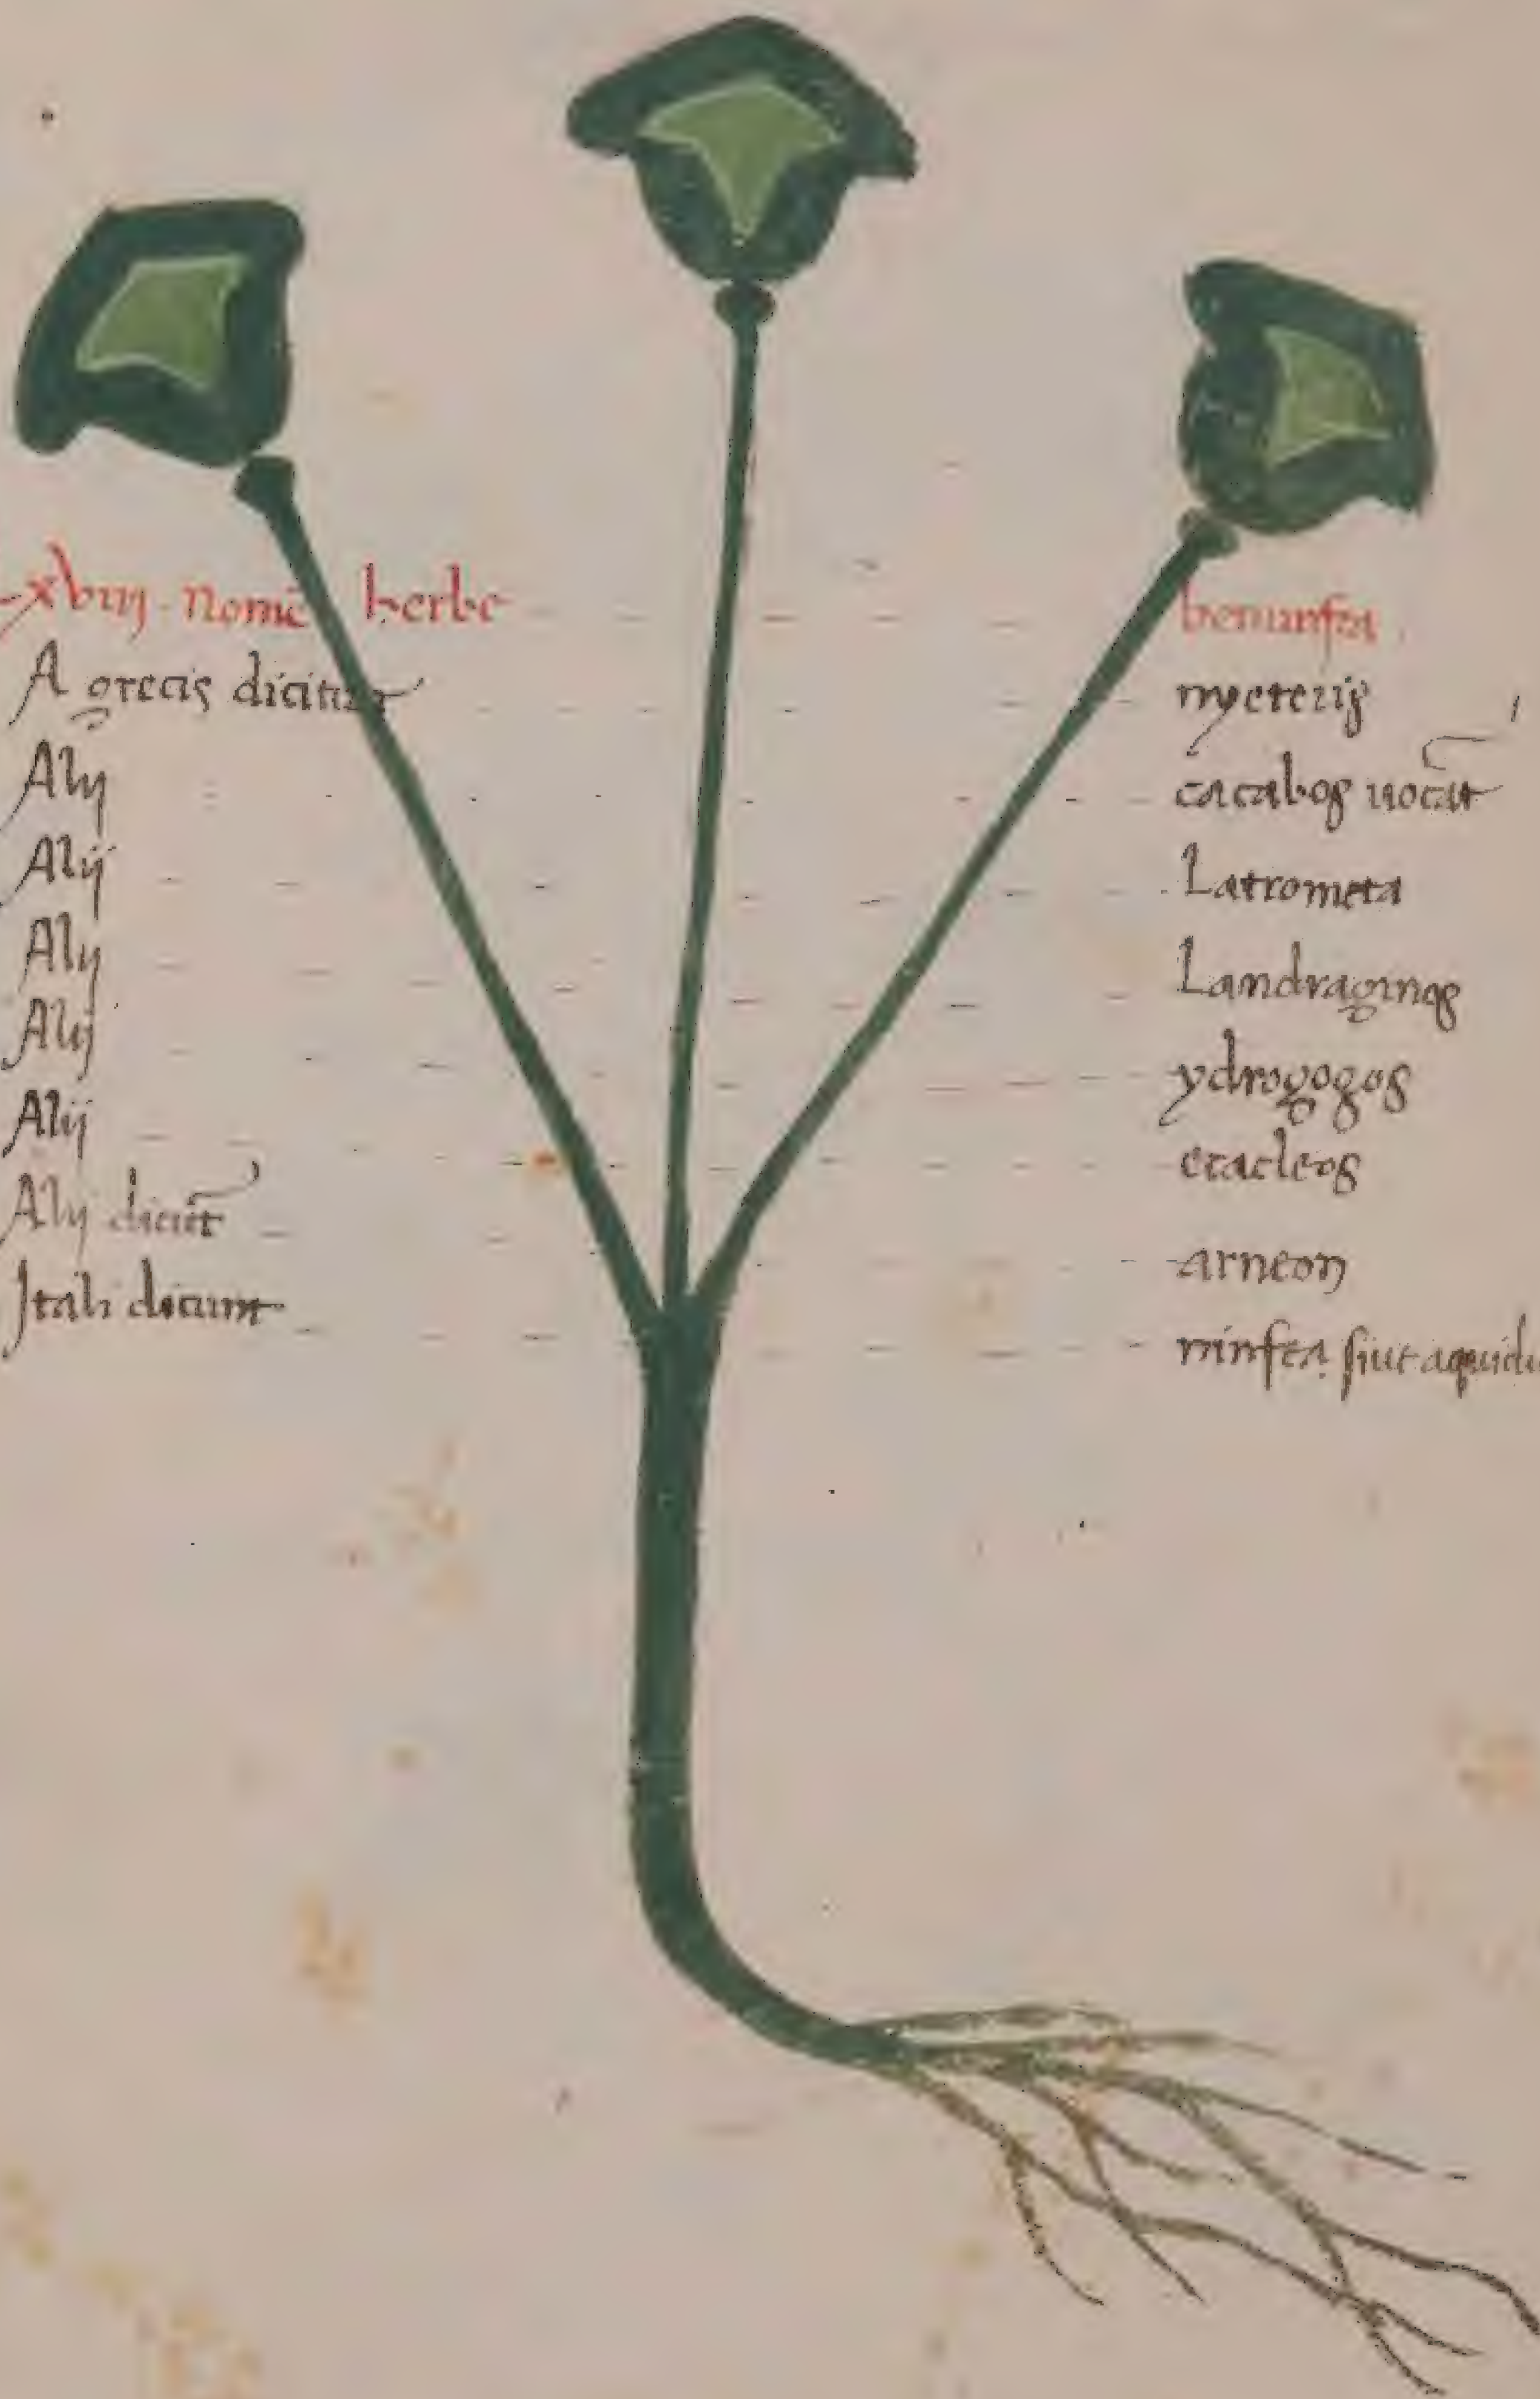 xviij. nomē herbe beniinfea
A grecis dicitur nyeteris
Alij cacabos uocāt
Alij Latrometa
Alij Landraginos
Alij ydrogogos
Alij eracleos
Alij dicūt arneon
Itali dicunt ninfea siue aquidu